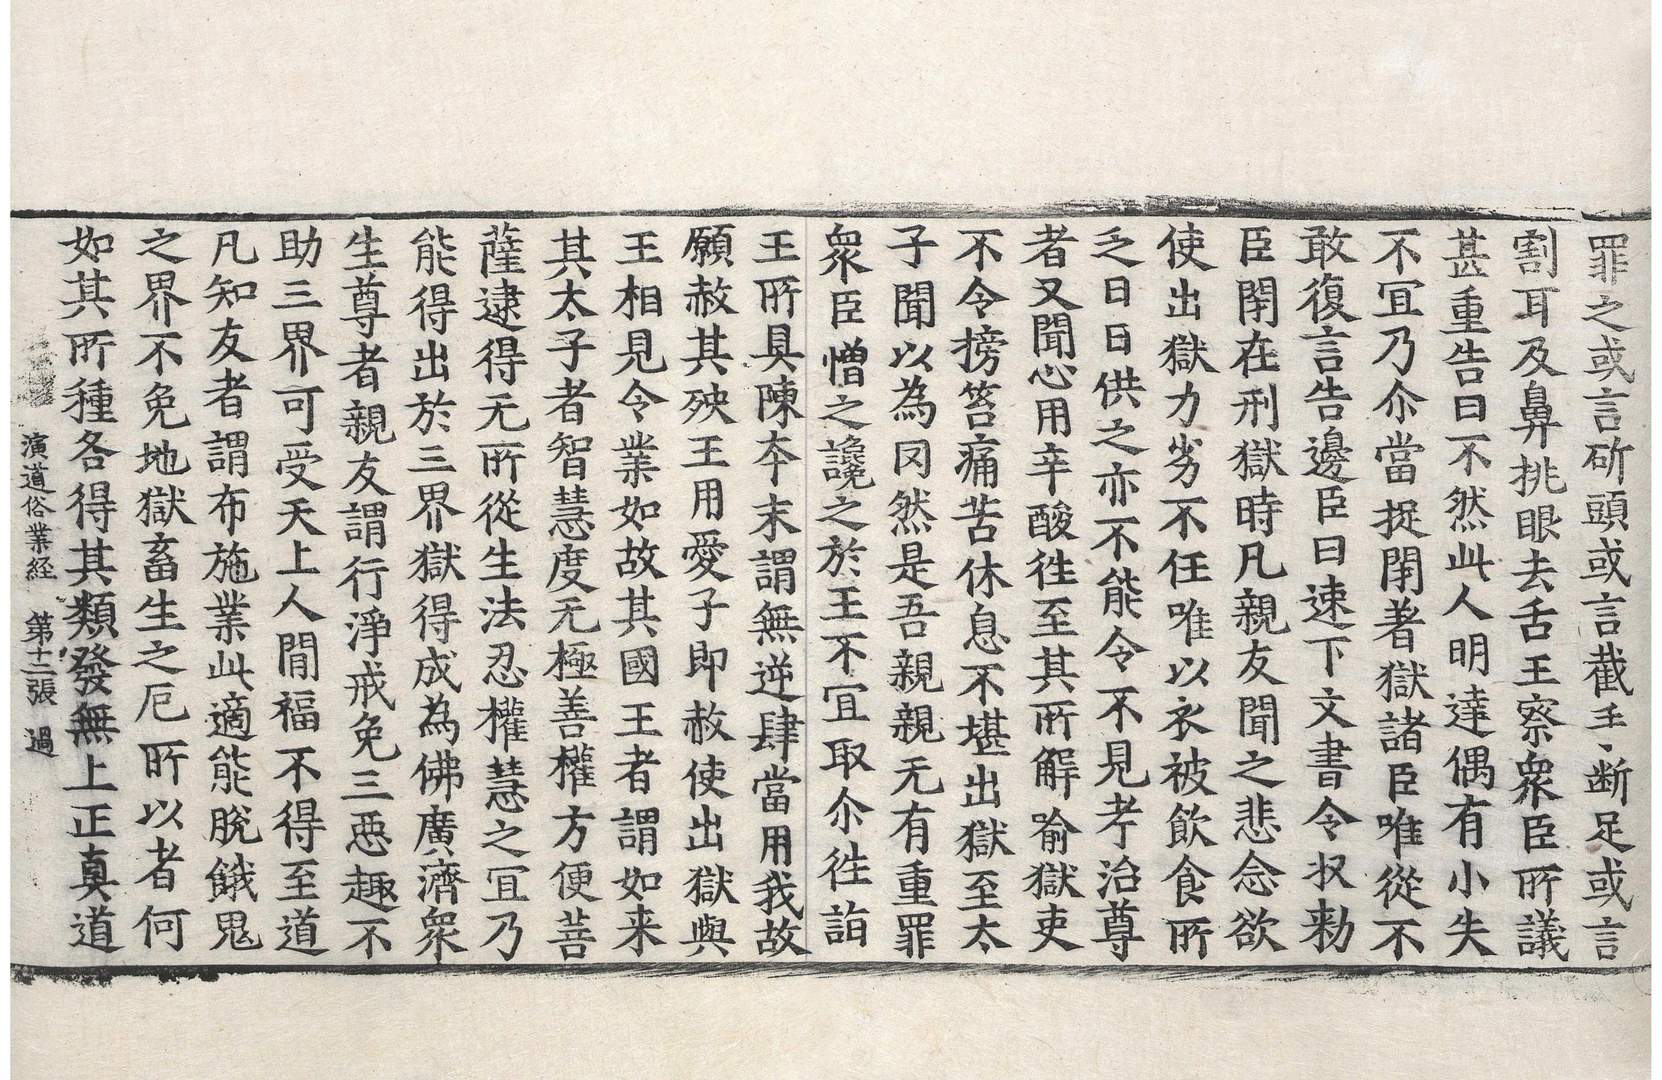 罪之或言斫頭或言截手断足或言
割耳及鼻挑眼去舌王察衆臣所議
甚重告曰不然此人明達偶有小失
不冝乃尒當捉閉著獄諸臣唯從不
敢復言告邊臣曰速下文書令収勑
臣閇在刑獄時凡親友聞之悲念欲
使出獄力劣不任唯以衣被飲食所
乏日日供之亦不能令不見考治尊
者又聞心用辛酸徃至其所解喻獄吏
不令搒笞痛苦休息不堪出獄至太
子聞以為冈然是吾親親无有重罪
衆臣憎之讒之於王不冝取尒徃詣
王所具陳夲末謂無逆肆當用我故
願赦其殃王用愛子即赦使出獄與
王相見令業如故其國王者謂如来
其太子者智慧度无極善權方便菩
薩逮得无所從生法忍權慧之冝乃
能得出於三界獄得成為佛廣濟衆
生尊者親友謂行淨戒免三惡趣不
助三界可受天上人閒福不得至道
凡知友者謂布施業此適能脫餓鬼
之界不免地獄畜生之厄所以者何
如其所種各得其類發無上正真道
演道俗業経　第十二張　過